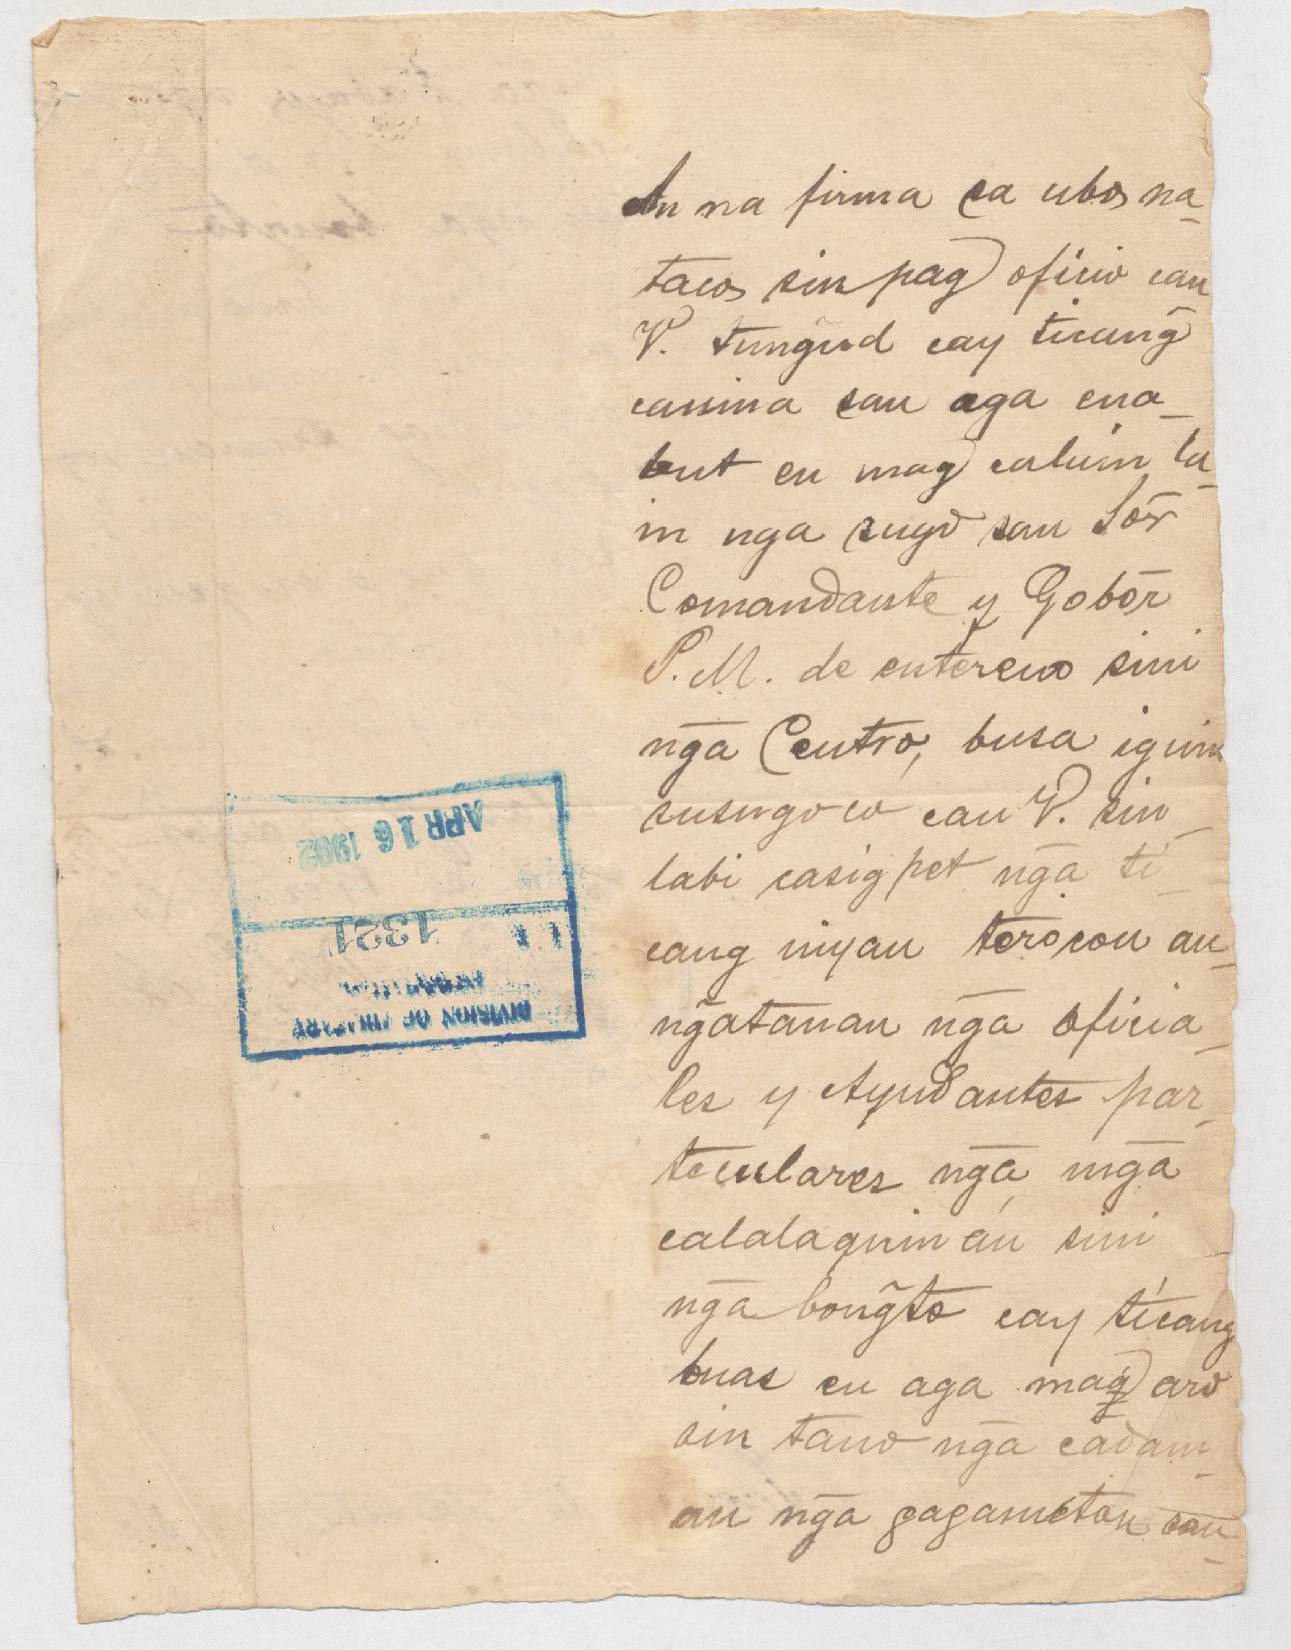 An na firma sa ubos na_
tacos sin pag oficio can
V. tungũd cay ticang̃
canina san aga ena_
but en mag caluin la_
in nga sugo san Sõr
Comandante y Gobõr
P. M. de entereno sini
ng̃a Centro, busa iguin
susugo co can V. sin_
labi casigpet ng̃a ti_
cang niyan torocon an_
ng̃atanan ng̃a oficia_
les y Ayudantes par_
ticulares ng̃a mg̃a
calalaquinán sini
ng̃a bong̃to cay ticang
buas en aga mag aro
sin tauo ng̃a cadam_
an ng̃a gagamiton san_
APR 16 1902
1321
DIVISION OF MILITARY
INFORMATION